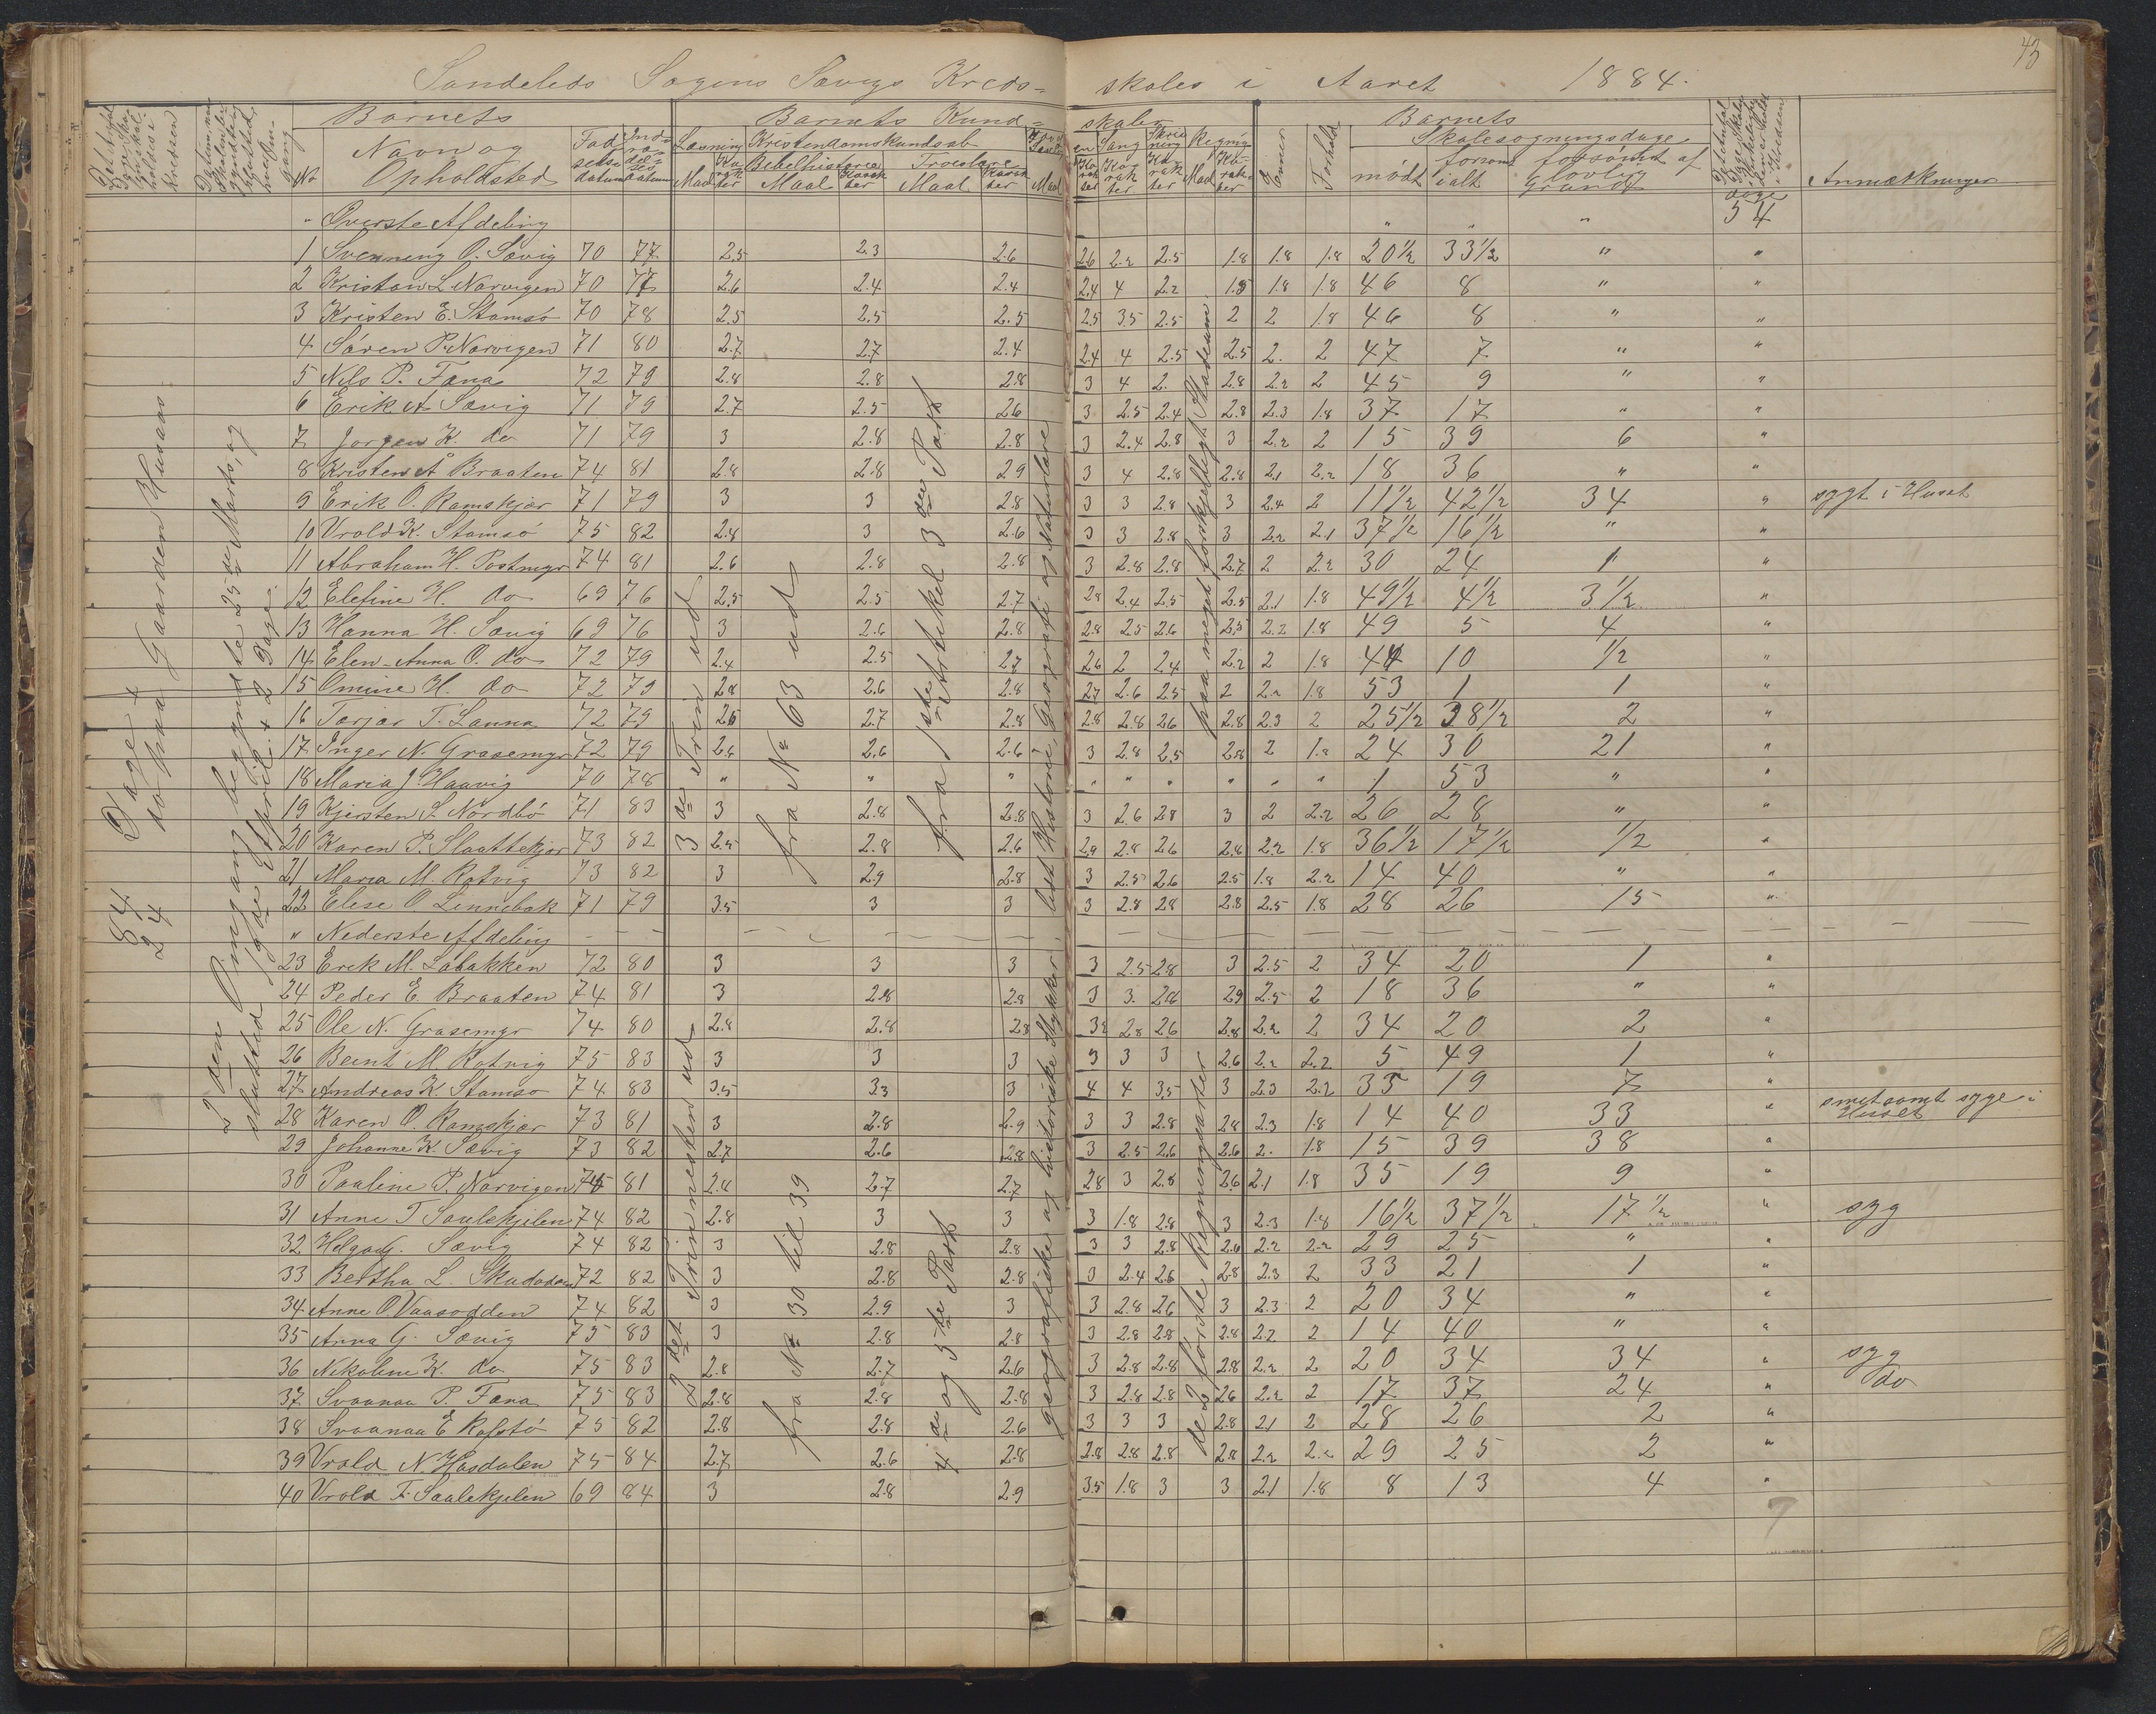 Søndeleds Sogns Sævigs Kreds= skoles i Aaret 1884.
43
Barnets Barnets Kund= skaber Barnets
No Navn og Opholdsted Fød selsdatum Læsning Kristendomskundskab Sang Skrivning Regning Evner Forhold Skolesøgningsdage Anmærkninger
Maal Karakter Bibelhistorie Maal Karakter Troeslære Maal Karakter Maal mødt forsømt ialt forsømt af lovlig Grund
" Øverste Afdeling " " " dage 54
1 Svenning O. Sævig 70 77 2.5 2.3 2.6 2.6 2.2 2.5 1.8 1.8 1.8 20½ 33½ " "
2 Kristian L. Narvigen 70 77 2.6 2.4 2.4 2.4 4 2.2 1.5 1.8 1.8 46 8 " "
3 Kristen E. Stamsø 70 78 2.5 2.5 2.5 2.5 3.5 2.5 2 2 1.8 46 8 " "
4 Søren P. Narvigen 71 80 2.7 2.7 2.4 2.4 4 2.5 2.5 2. 2 47 7 " "
5 Nils P. Fæna 72 79 2.8 2.8 2.8 3 4 2. 2.8 2.2 2 45 9 " "
6 Erik A. Sævig 71 79 2.7 2.5 2.6 3 2.5 2.4 2.8 2.3 1.8 37 17 " "
7 Jørgen K. do 71 79 3 2.8 2.8 3 2.4 2.8 3 2.2 2 15 39 6 "
8 Kristen Å Braaten 74 81 2.8 2.8 2.9 3 4 2.8 2.8 2.1 2.2 18 36 " "
9 Erik O. Ramskjær 71 79 3 3 2.8 3 3 2.8 3 2.4 2 11½ 42½ 34 " sygt i Huset
10 Vrold K. Stamsø 75 82 2.8 3 2.6 3 3 2.8 3 2.2 2.1 37½ 16½ " "
11 Abraham H. Postmyr 74 81 2.6 2.8 2.8 3 2.8 2.8 2.7 2 2.2 30 24 1 "
12 Elefine H. do 69 76 2.5 2.5 2.7 2.8 2.4 2.5 2.5 2.1 1.8 49½ 4½ 3½ "
13 Hanna H. Sævig 69 76 3 2.6 2.8 2.8 2.5 2.6 2.5 2.2 1.8 49 5 4 "
14 Elen-Anna O. do 72 79 2.4 2.5 2.7 2.6 2 2.4 2.2 2 1.8 44 10 ½ "
15 Omine H. do 72 79 2.8 2.6 2.8 2.7 2.6 2.5 2 2.2 1.8 53 1 1 "
16 Tarjer T. Lanna 72 79 2.6 2.7 2.8 2.8 2.8 2.6 2.8 2.3 2 25½ 28½ 2 "
17 Inger N. Grasemyr 72 79 2.6 2.6 2.6 3 2.8 2.5 2.8 2 1.8 24 30 21 "
18 Maria J. Haavig 70 78 " " " " " " " " " 1 53 " "
19 Kjersten S. Nordbø 71 83 3 2.8 2.8 3 2.6 2.8 3 2 2.2 26 28 " "
20 Karen P. Slaattekjær 73 82 2.5 2.8 2.6 2.9 2.8 2.6 2.8 2.2 1.8 36½ 17½ ½ "
21 Maria M. Rotvig 73 82 3 2.9 2.8 3 2.5 2.6 2.5 1.8 2.2 14 40 " "
22 Elise O. Lennebak 71 79 3.5 3 3 3 2.8 2.8 2.8 2.5 1.8 28 26 15 "
" Nederste Afdeling
23 Erik M. Labakken 72 80 3 3 3 3 2.5 2.8 3 2.5 2 34 20 1 "
24 Peder E. Braaten 74 81 3 2.8 2.8 3 3. 2.8 2.9 2.5 2 18 36 " "
25 Ole N. Grasemyr 74 80 2.8 2.8 2.8 3.2 2.8 2.6 2.8 2.2 2 34 20 2 "
26 Beint M. Rotvig 75 83 3 3 3 3 3 3 2.6 2.2 2.2 5 49 1 "
27 Andreas K. Stamsø 74 83 3.5 3.3 3 4 4 3.5 3 2.3 2.2 35 19 7 "
28 Karen O. Ramskjær 73 81 3 2.8 2.9 3 3 2.8 2.8 2.3 1.8 14 40 33 " smetsomt syge i Huset
29 Johanne K. Sævig 73 82 2.7 2.6 2.8 3 2.5 2.6 2.6 2. 1.8 15 39 38 "
30 Pauline P. Narvigen 75 81 2.8 2.7 2.7 2.8 3 2.8 2.6 2.1 1.8 35 19 9 "
31 Anne T Saulekjelen 74 82 2.8 3 3 3 1.8 2.8 3 2.3 1.8 16½ 37½ 17½ " syg
32 Helga G. Sævig 74 82 3 2.8 2.8 3 3 2.8 2.6 2.2 2.2 29 25 " "
33 Bertha L. Skadaden 72 82 3 2.8 2.8 3 2.4 2.6 2.8 2.3 2 33 21 1 "
34 Anne O. Vaasodden 74 82 3 2.9 3 3 2.8 2.6 3 2.3 2 20 34 " "
35 Anna G. Sævig 75 83 3 2.8 2.8 3 2.8 2.8 2.8 2.2 2 14 40 " "
36 Nikoline K. do 75 83 2.8 2.7 2.6 3 2.8 2.8 2.8 2.2 2 20 34 34 " syg
37 Svaanau P. Fæna 75 83 2.8 2.8 2.8 3 2.8 2.8 2.6 2.2 2 17 37 24 " do
38 Svaanaa E Rofstø 75 82 2.8 2.8 2.6 3 3 3 2.8 2.1 2 28 26 2 "
39 Vrold N Hasdalen 75 84 2.7 2.6 2.8 2.8 2.8 2.8 2.8 2.2 2.2 29 25 2 "
40 Vrold T. Saulekjelen 69 84 3 2.8 2.9 3.5 1.8 3 3 2.1 1.8 8 13 4 "
84 Dage +
24 do paa Gaarden Husaas.
2den Omgang begyndte 25de Marts, og
slutted 19de April + 2 Dage.
3de Trin ud
fra No 63 ud
fra 1ste Artikel 3den Part
lidt Historie, Geografi og Naturlære
paa meget forskjelligt Stadium.
2det Trin næsten ud
fra No 30 til 39
4de og 5te Part
geografiske og historiske Stykker
de 2 første Regningsarter